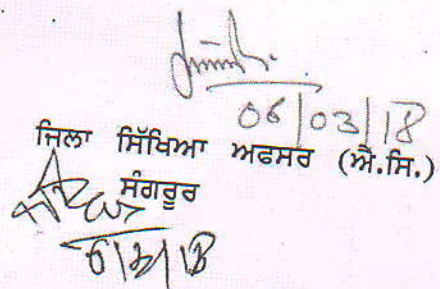 06/03/18
ਜਿਲਾ ਸਿੱਖਿਆ ਅਫਸਰ (ਐ.ਸਿ.)
ਸੰਗਰੂਰ
6/3/18